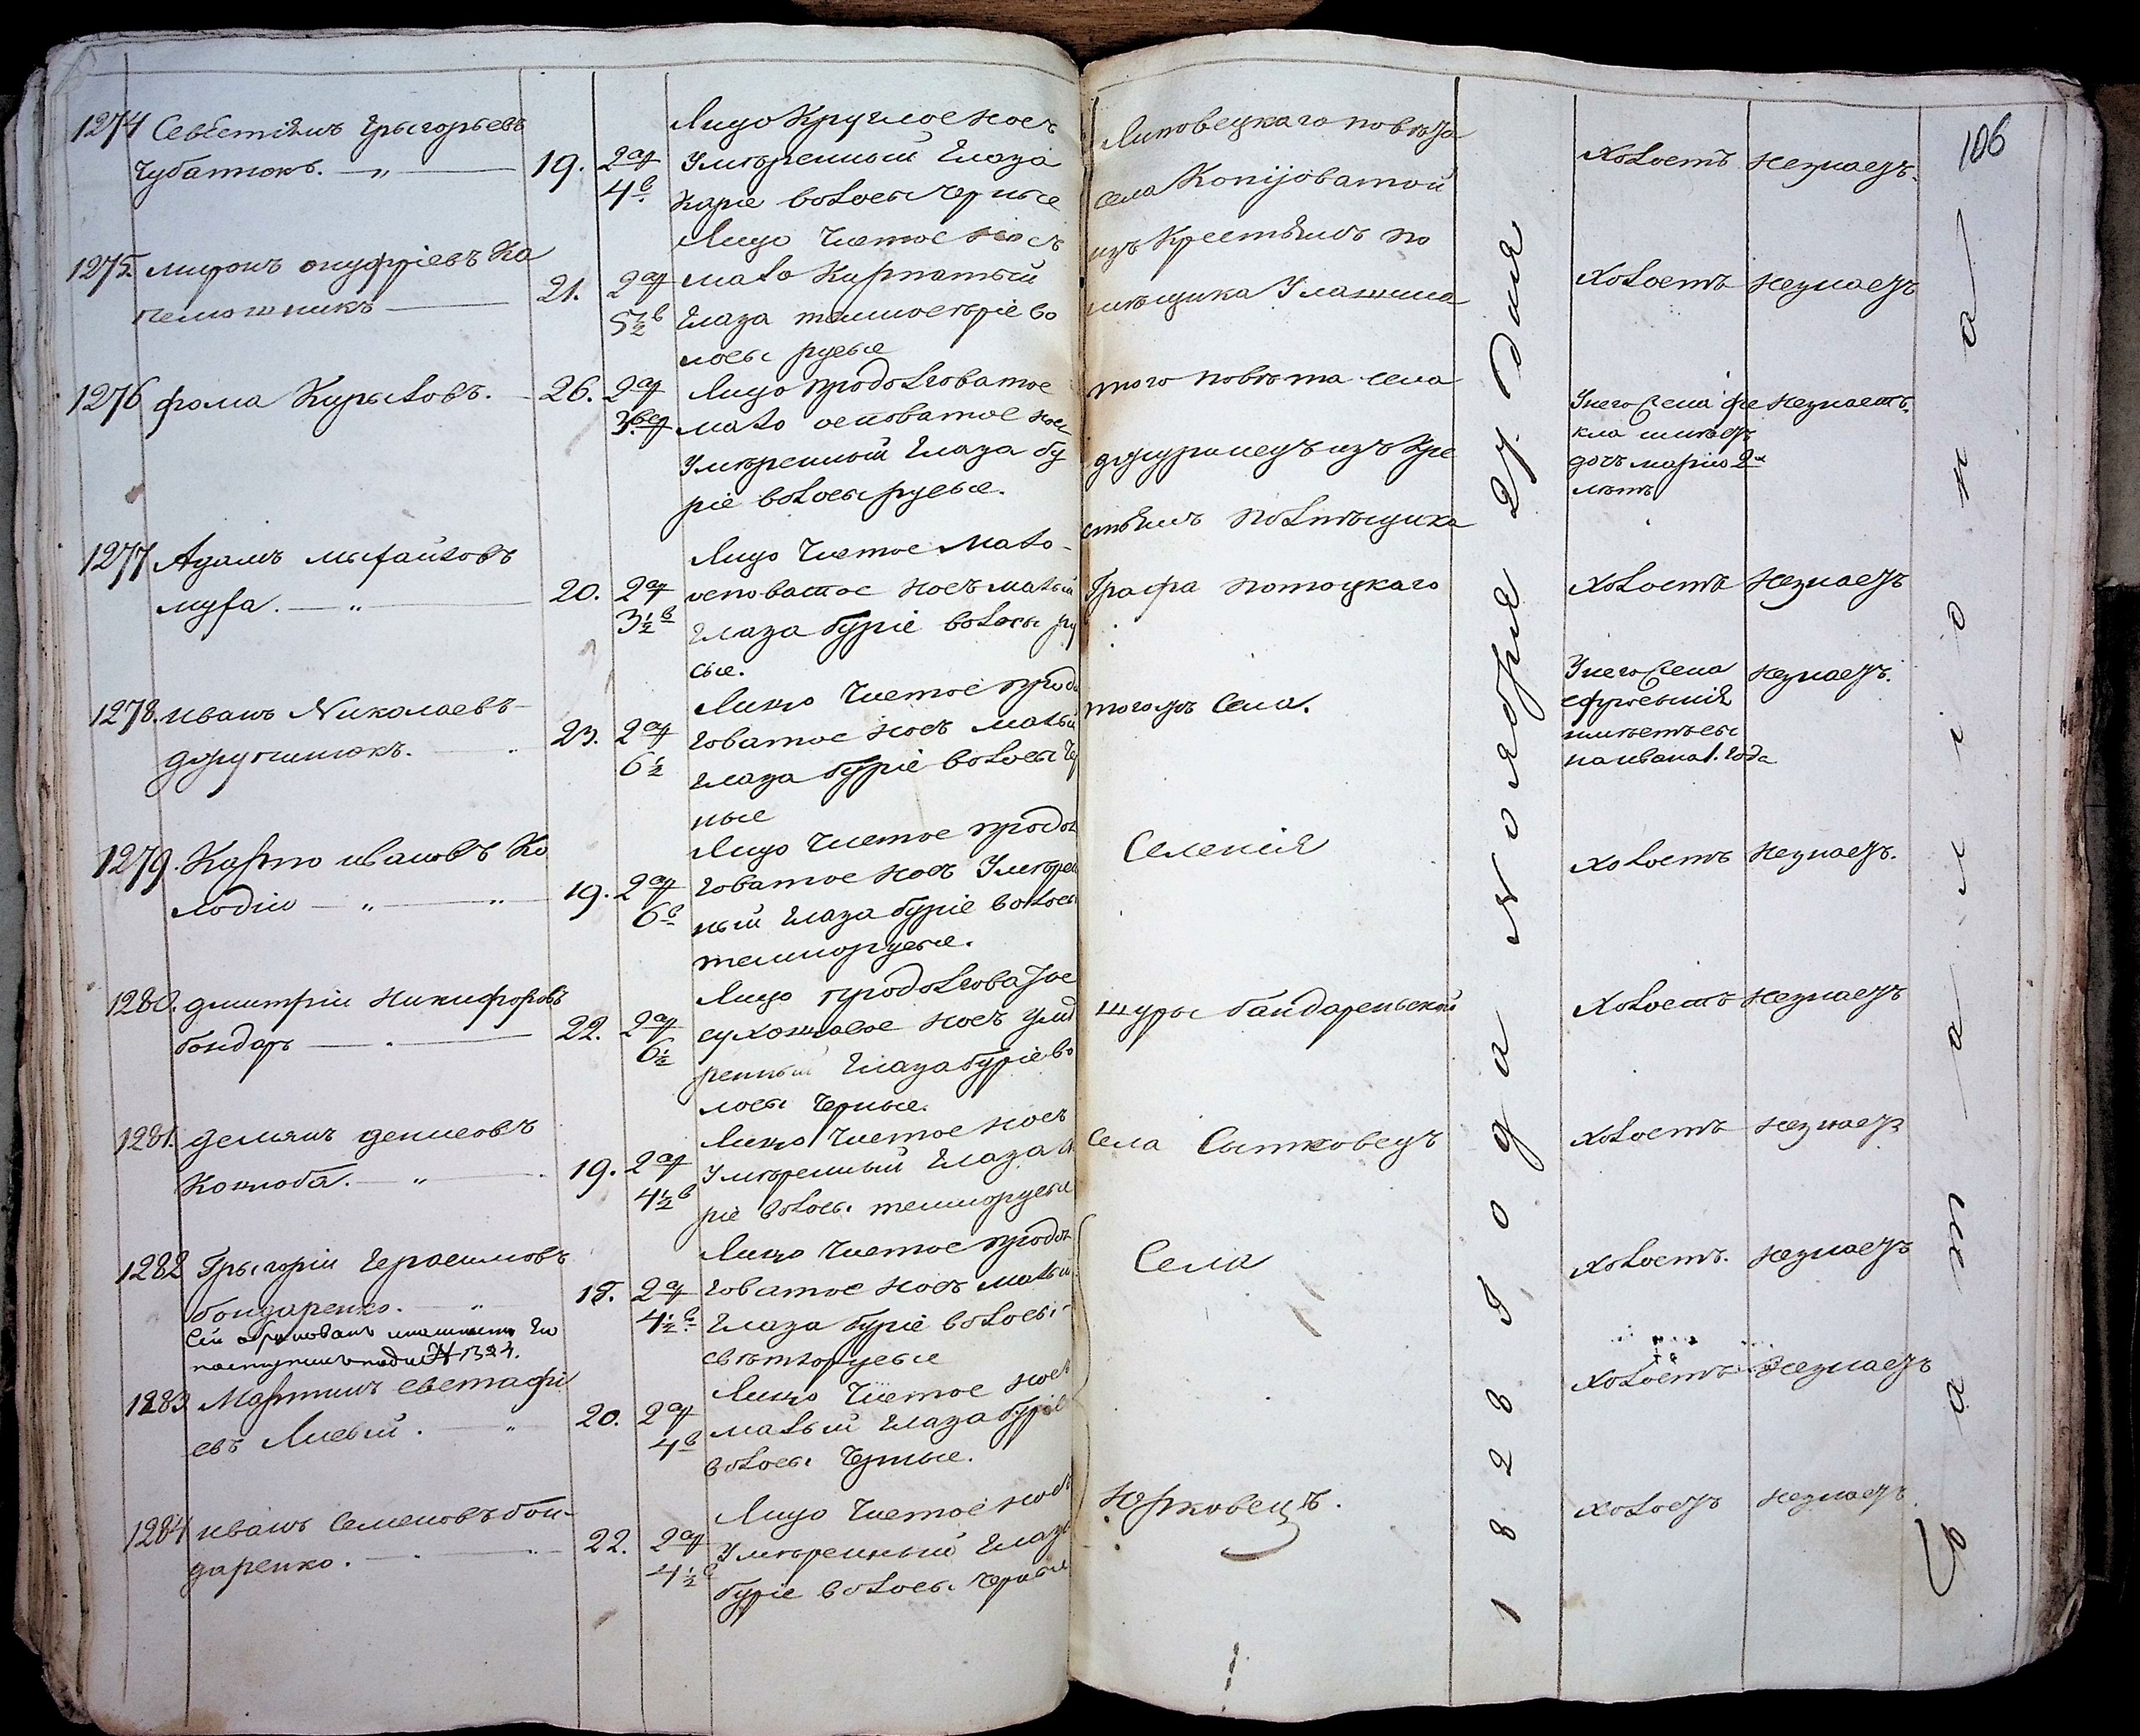 106
1274 Севестіянъ Грыгорьевъ
Чубатюкъ. — „ —
19.
2 ар
4 в
Лицо Круглое носъ
умѣренной глаза
каріе волосы черные
Липовецкаго повѣта
села Конціоватой
изъ Крестьянъ по
холостъ
незнаетъ.
1275. миронъ онуфріевъ Ка
пелюшникъ —
21.
2 ар
5½ в
Лицо Чистое носъ
мало Кирпатый
глаза темносѣріе во
лосы русые
мѣщика
холостъ
незнаетъ
1276 фома Кирыловъ. —
26.
2 ар
3 вер
Лицо продолговатое
мало осповатое носъ
умѣренный глаза бу
ріе волосы русые.
того повѣта села
изъ Кре
стьянъ помѣщика
У него жена фе
кла имѣетъ
дочь марію 2х
лѣтъ
незнаетъ.
1277 Адамъ
муха. — „ —
20.
2 ар
3½ в
Лицо Чистое мало-
осповатое носъ малый
глаза буріе волосы ру
сые.
Графа потоцкаго
холостъ
незнаетъ
1278. иванъ Николаевъ-
23.
2 ар
6½
Лицо Чистое продол
говатое носъ малый
глаза буріе волосы Чер
ные
того жъ Села.
У него жена
ефросинія
имѣетъ сы
на ивана 1. года
незнаетъ.
1279. Карпо ивановъ Ко
лодій — „ — „ —
19.
2 ар
6 в
Лицо Чистое продол
говатое носъ Умѣрен
ный глаза буріе волосы
темнорусые.
Селенія
холостъ
незнаетъ.
1280. дмитрій никифоровъ
бондарь — . —
22.
2 ар
6½
Лицо продолговатое
сухощавое носъ умѣ
ренный глаза буріе во
лосы черные.
щуры бандареньской
холостъ
незнаетъ
1281. демянъ денисовъ
Коцюба. — „ —
19.
2 ар
4½ в
Лицо Чистое носъ
Умѣренный глаза
ріе волосы темнорусые
Села Ситковецъ
холостъ
незнаетъ
1282 Грыгорій Герасимовъ
бондаренко. — „
Сей
№ 1324.
18.
2 ар
4½ в.
Лицо Чистое продол
говатое носъ малый
глаза буріе волосы-
свѣтлорусые
Села
холостъ.
незнаетъ
1283 Мартинъ евстафі
евъ Лисый. — „
20.
2 ар
4 в
Лицо Чистое носъ
малый глаза буріе
волосы Черные.
холостъ
незнаетъ
1284 иванъ Семеновъ бон-
даренко. — . —
22.
2 ар
4½ в
Лицо Чистое носъ
Умѣренный глаза
буріе волосы Черные
Юрковецъ.
холостъ
незнаетъ.
1828 Года Ноября 27. Дня
Баталіона